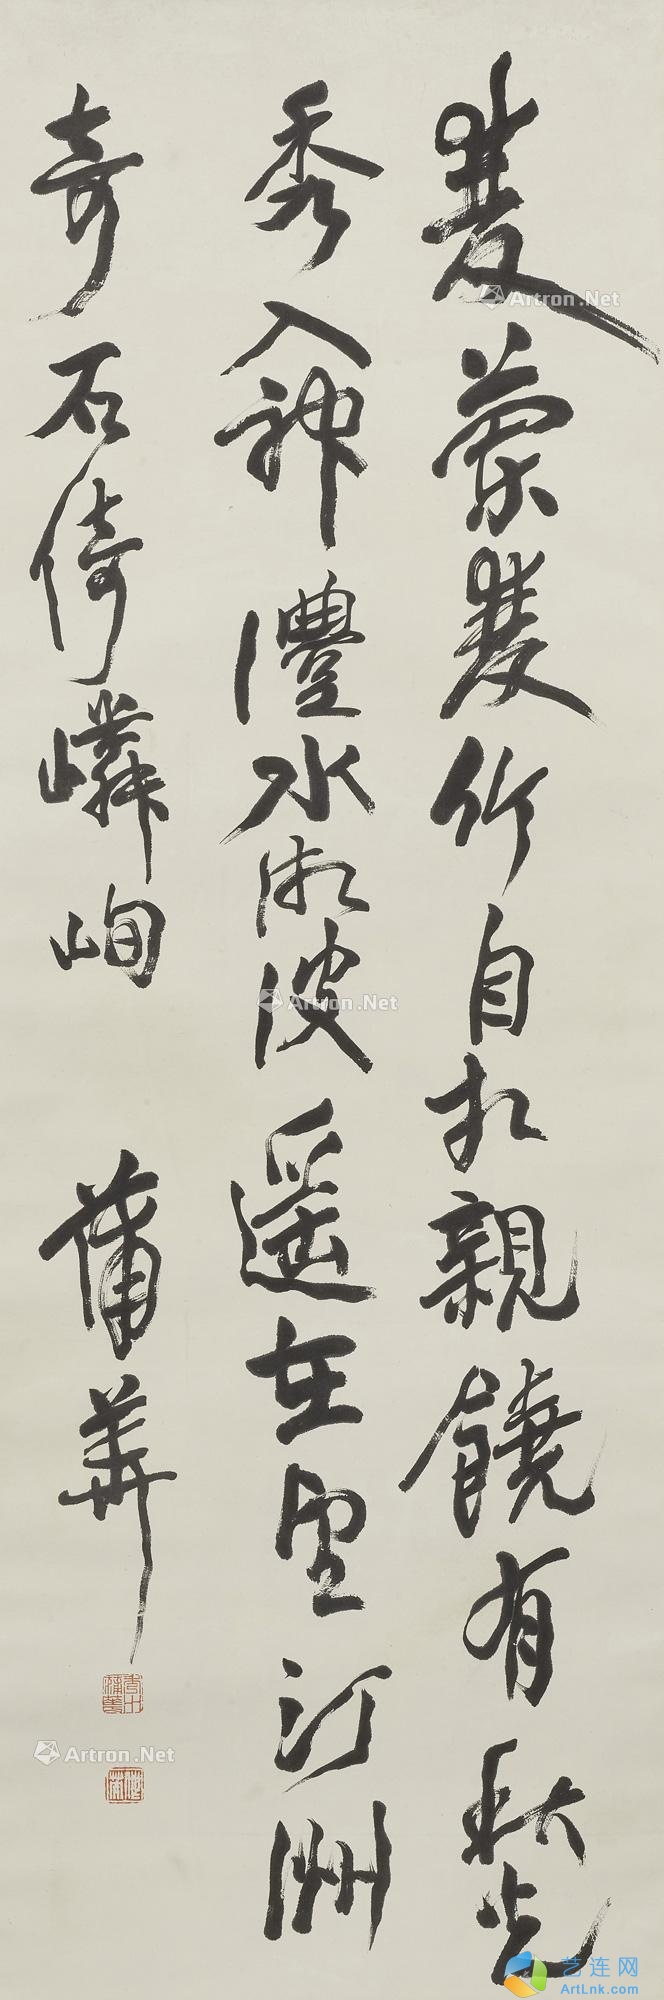 叢蘭叢竹自相親饒有秋光
秀入神澧水湘波遙在望汀洲
奇石倚嶙峋
蒲華
Artron.Net
Artron.Net
Artron.Net
艺连网
ArtLnk.com